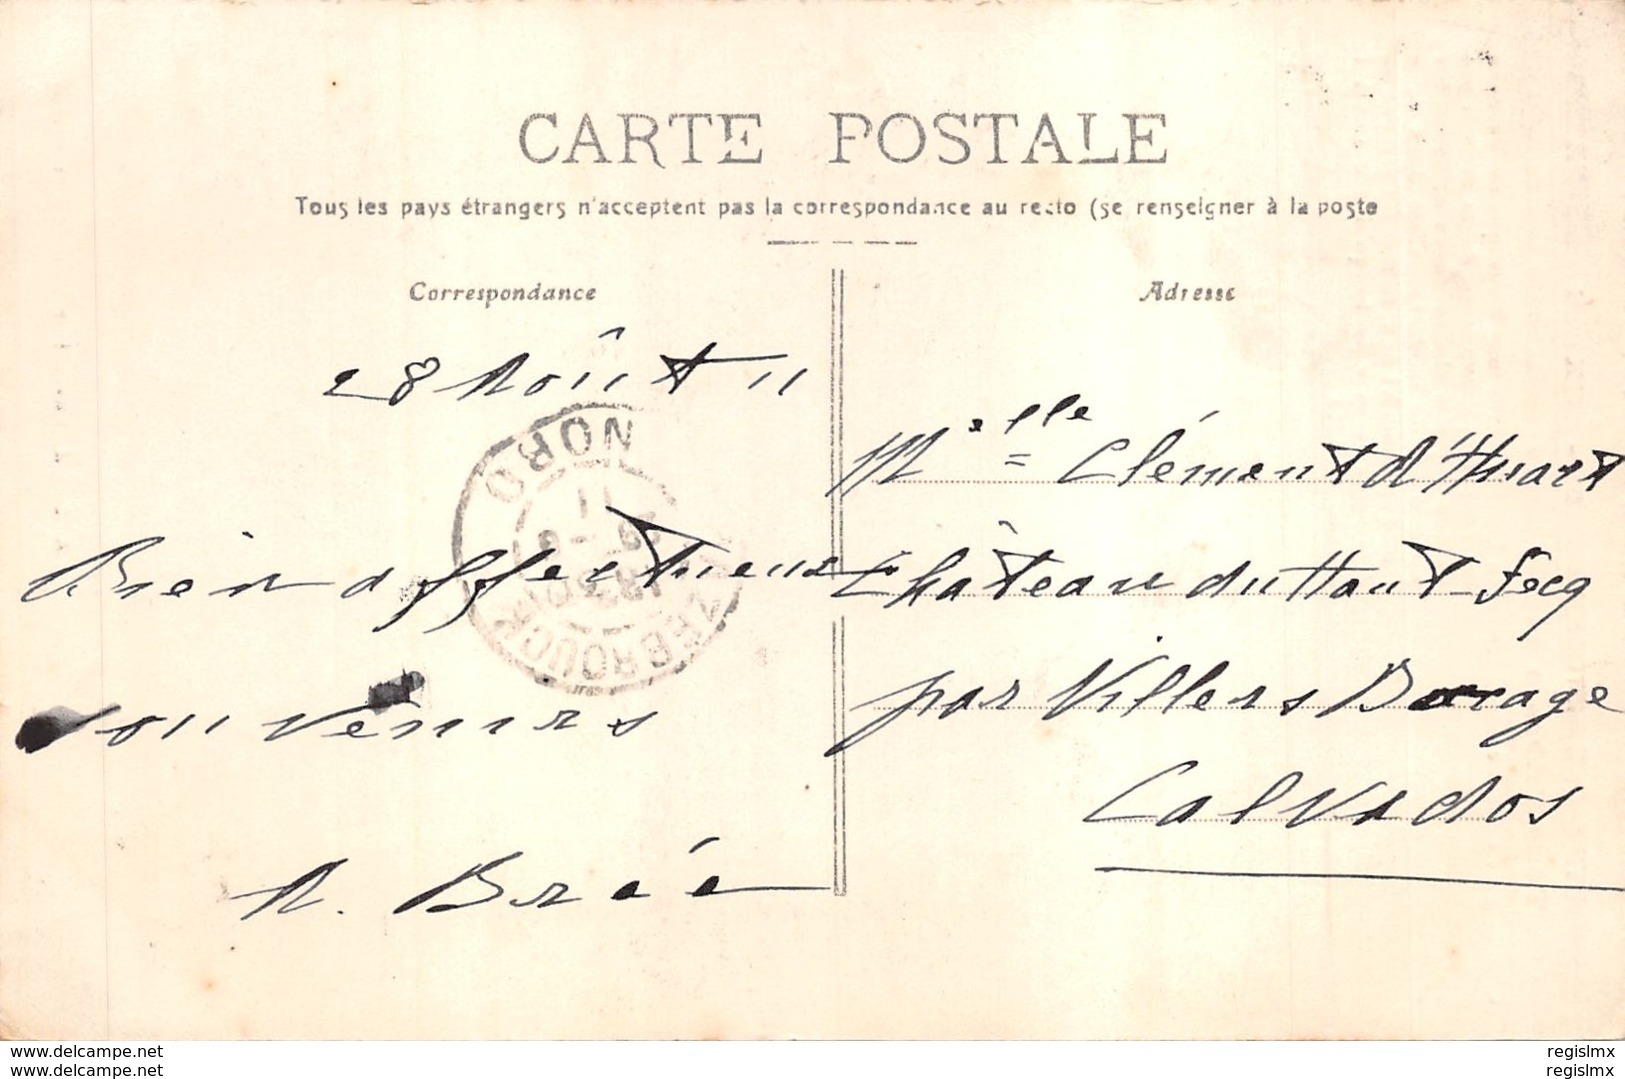 CARTE POSTALE
Tous les pays étrangers n'acceptent pas la correspondance au recto (se renseigner à la poste
Correspondance
28 Août 11
NORD
HAZEBROUCK
Bien affectueux
souvenirs
A. Brée
Adresse
Melle Clément d'Huart
Château du Haut-Focq
par Villers Bocage
Calvados
www.delcampe.net
regislmx
www.delcampe.net
regislmx